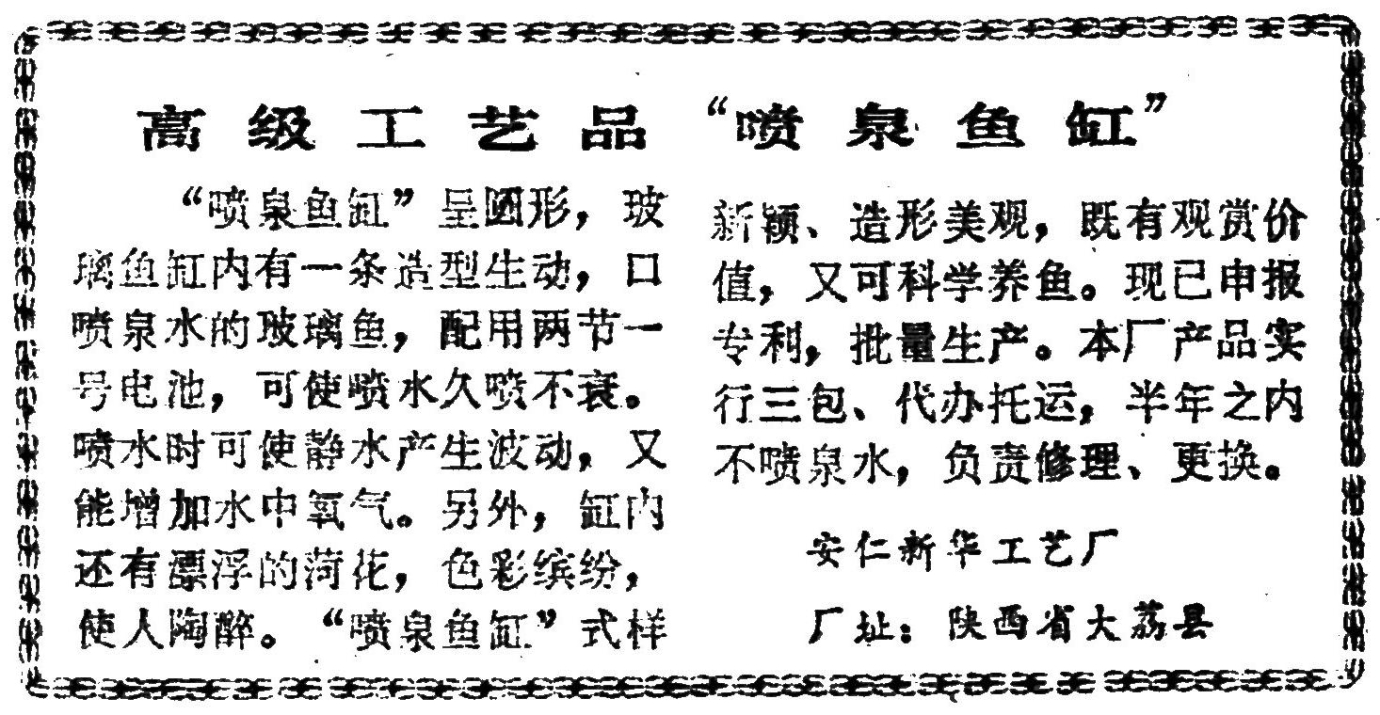 高级工艺品“喷泉鱼缸”
“喷泉鱼缸”呈圆形，玻
璃鱼缸内有一条造型生动，口
喷泉水的玻璃鱼，配用两节一
号电池，可使喷水久喷不衰。
喷水时可使静水产生波动，又
能增加水中氧气。另外，缸内
还有漂浮的荷花，色彩缤纷，
使人陶醉。“喷泉鱼缸”式样
新颖、造形美观，既有观赏价
值，又可科学养鱼。现已申报
专利，批量生产。本厂产品实
行三包、代办托运，半年之内
不喷泉水，负责修理、更换。
安仁新华工艺厂
厂址：陕西省大荔县